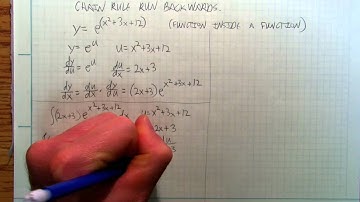 CHAIN RULE RUN BACKWARDS.
y = e^(x²+3x+12) (FUNCTION INSIDE A FUNCTION)
y = e^u u = x²+3x+12
dy/du = e^u du/dx = 2x+3
dy/dx = du/dx · dy/du = (2x+3)e^(x²+3x+12)
∫(2x+3)e^(x²+3x+12) dx u = x²+3x+12
2x+3
du